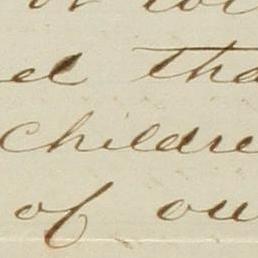 el tha
childre
of ou